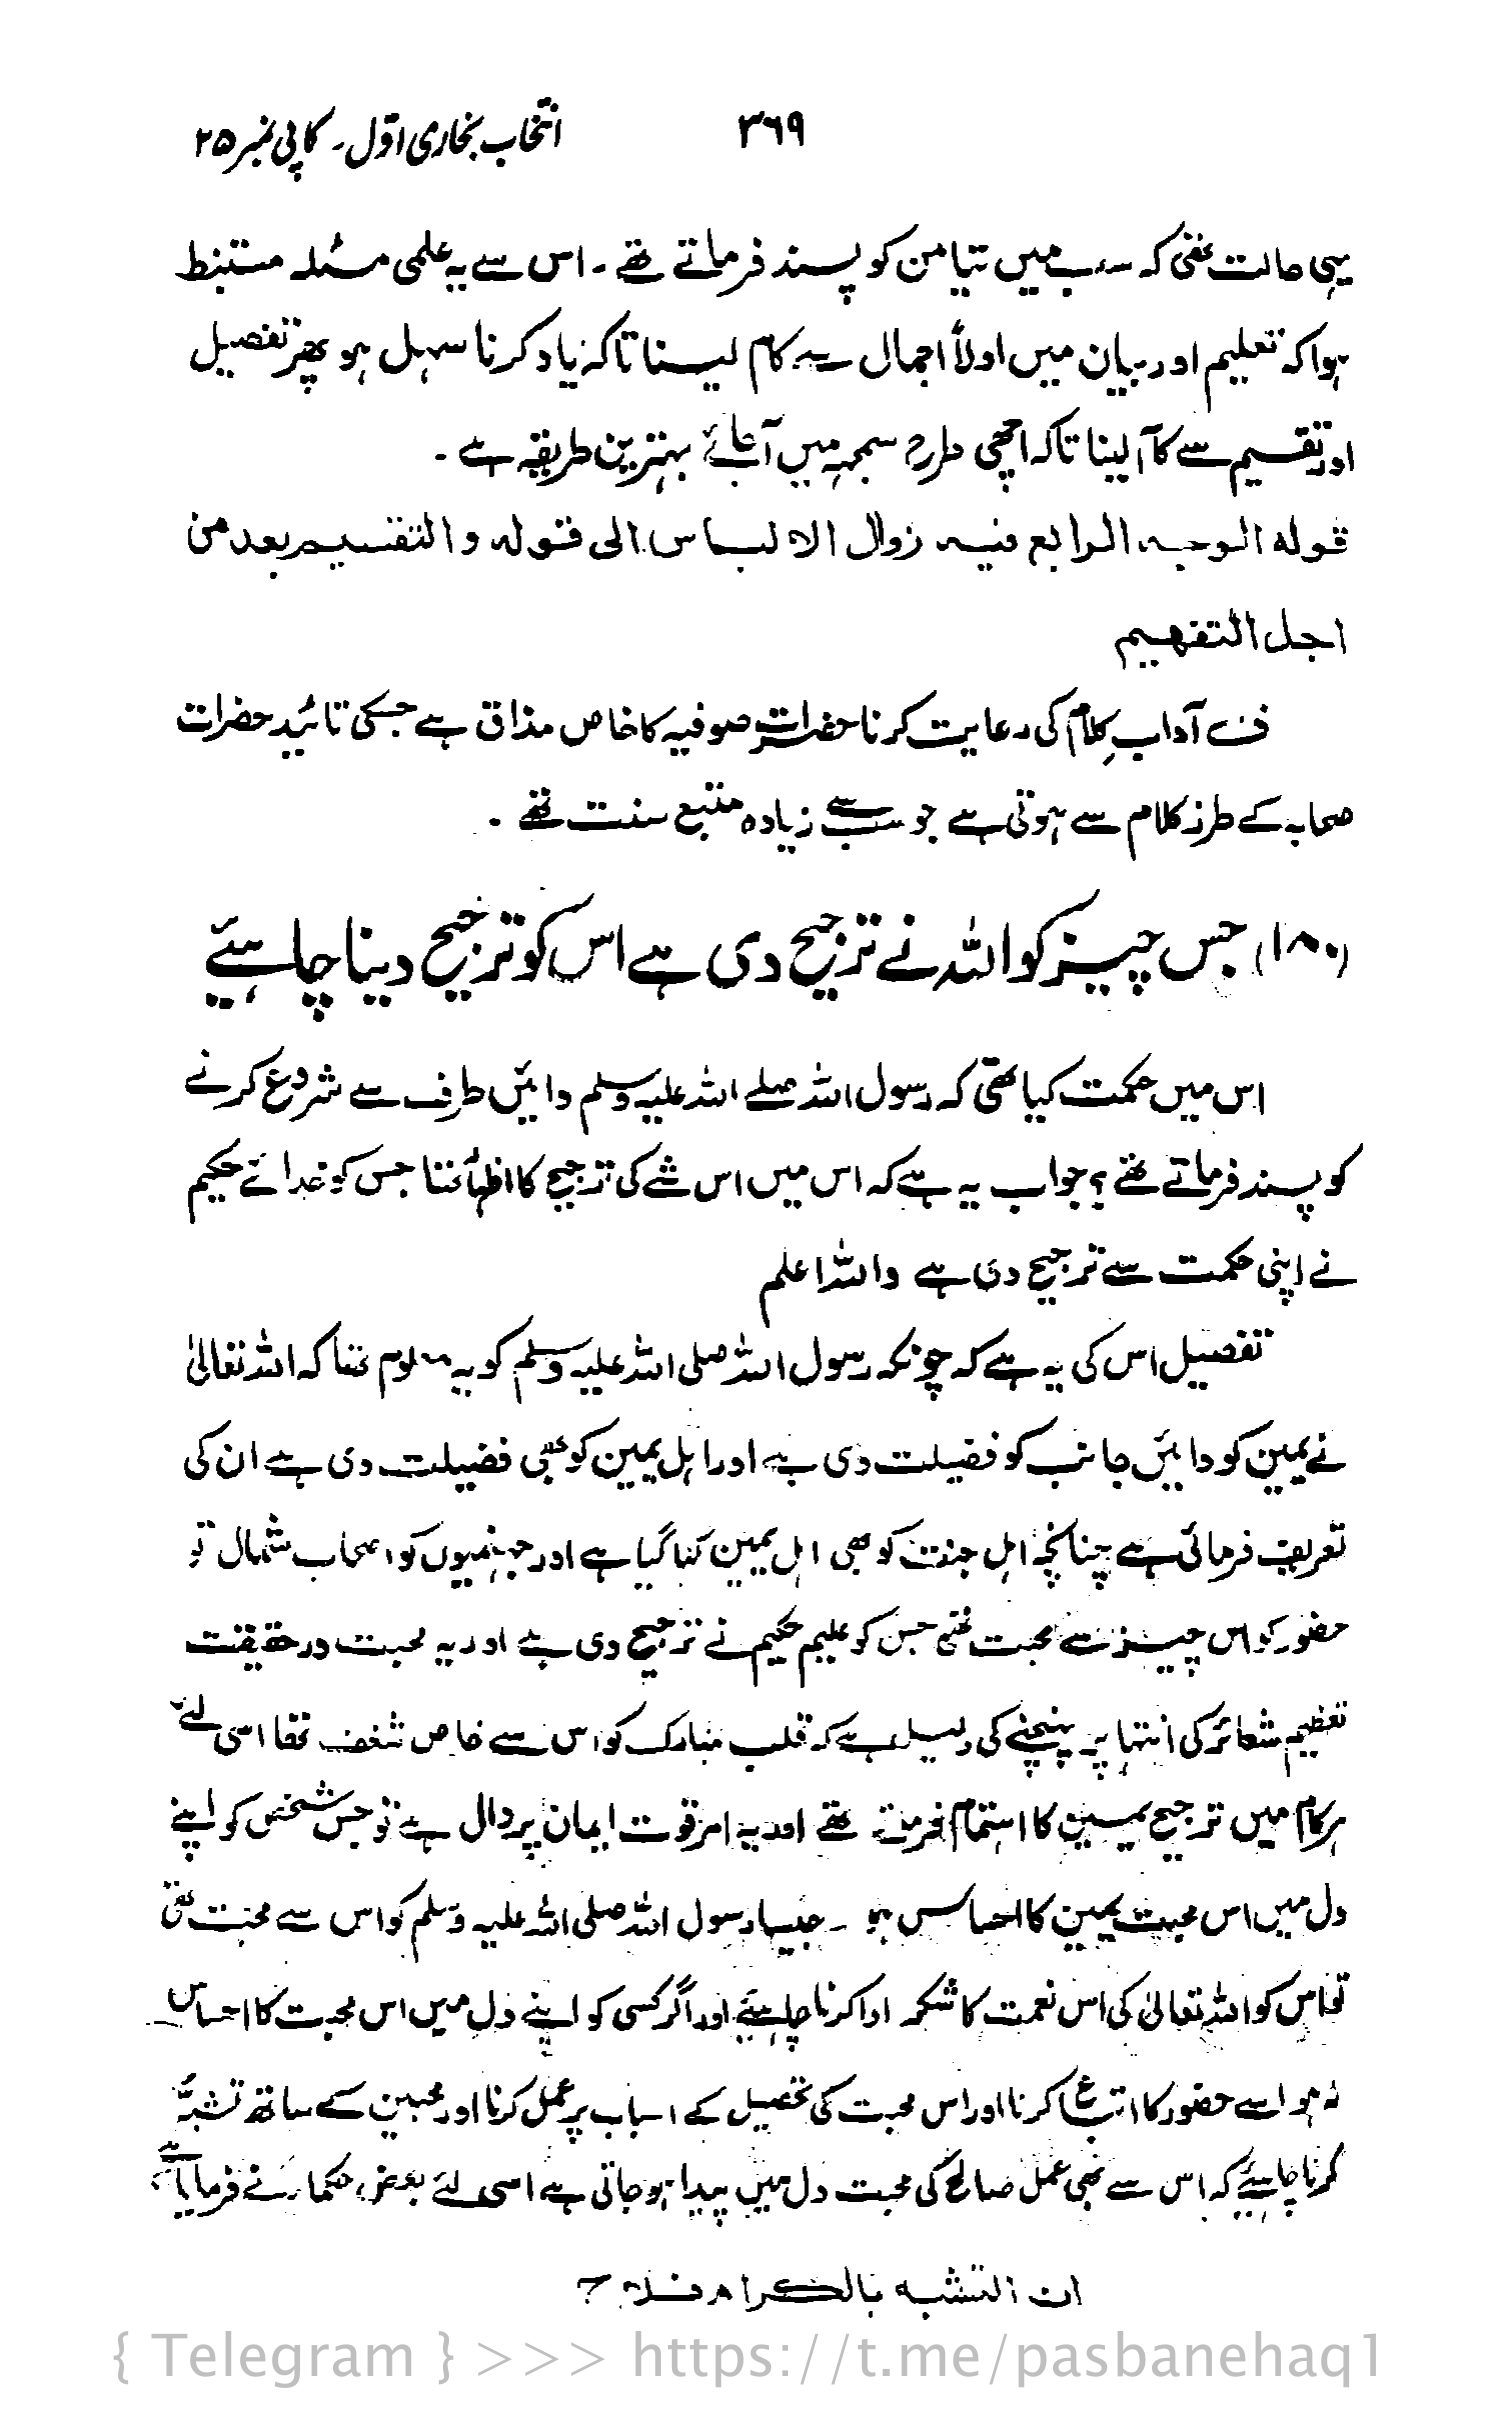 ۳۶۹ انتخاب بخاری اوّل۔ کاپی نمبر ۲۵
یہی حالت تھی کہ سب میں تیامن کو پسند فرماتے تھے۔ اس سے یہ علمی مسئلہ مستنبط
ہوا کہ تعلیم اور بیان میں اولاً اجمال سے کام لینا تاکہ یاد کرنا سہل ہو پھر تفصیل
اور تقسیم سے کام لینا تاکہ اچھی طرح سمجھ میں آجائے بہترین طریقہ ہے۔
قولہ الوجہ الرابع فیہ زوال الالباس الی قولہ والتقسیم بعد من
اجل التفہیم
ف آداب کلام کی رعایت کرنا حضرات صوفیہ کا خاص مذاق ہے جسکی تائید حضرات
صحابہ کے طرز کلام سے ہوتی ہے جو سب سے زیادہ متبع سنت تھے۔
(۱۸۰) جس چیز کو اللہ نے ترجیح دی ہے اس کو ترجیح دینا چاہئیے
اس میں حکمت کیا تھی کہ رسول اللہ صلے اللہ علیہ وسلم دائیں طرف سے شروع کرنے
کو پسند فرماتے تھے؟ جواب یہ ہے کہ اس میں اس شے کی ترجیح کا اظہار تھا جس کو خدائے حکیم
نے اپنی حکمت سے ترجیح دی ہے واللہ اعلم
تفصیل اس کی یہ ہے کہ چونکہ رسول اللہ صلی اللہ علیہ وسلم کو یہ معلوم تھا کہ اللہ تعالیٰ
نے یمین کو دائیں جانب کو فضیلت دی ہے اور اہل یمین کو بھی فضیلت دی ہے ان کی
تعریف فرمائی ہے چنانچہ اہل جنت کو بھی اہل یمین کہا گیا ہے اور جہنمیوں کو اصحاب شمال تو
حضور کو اس چیز سے محبت تھی جس کو علیم حکیم نے ترجیح دی ہے اور یہ محبت درحقیقت
تعظیم شعائر کی انتہا پر پہنچنے کی دلیل ہے کہ قلب مبارک کو اس سے خاص شغف تھا اسی لئے
ہر کام میں ترجیح یمین کا اہتمام فرماتے تھے اور یہ امر قوت ایمان پر دال ہے تو جس شخص کو اپنے
دل میں اس محبت یمین کا احساس ہو ۔ جیسا رسول اللہ صلی اللہ علیہ وسلم کو اس سے محبت تھی
تو اس کو اللہ تعالیٰ کی اس نعمت کا شکر ادا کرنا چاہئیے اور اگر کسی کو اپنے دل میں اس محبت کا احساس
نہ ہو اسے حضور کا اتباع کرنا اور اس محبت کی تحصیل کے اسباب پر عمل کرنا اور محبین کے ساتھ تشبّہ
کرنا چاہئیے کہ اس سے بھی عمل صالح کی محبت دل میں پیدا ہو جاتی ہے اسی لئے بعض حکماء نے فرمایا ہے
ان التشبہ بالکرام فلاح
{ Telegram } >>> https://t.me/pasbanehaq1